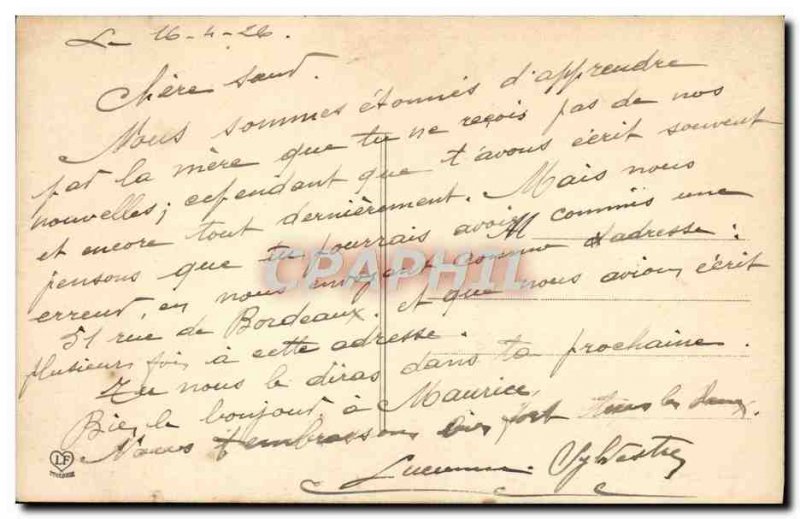 Le 16-4-26.
Chère sœur.
Nous sommes étonnés d'apprendre
par la mère que tu ne reçois pas de nos
nouvelles; cependant que t'avons écrit souvent
et encore tout dernièrement. Mais nous
pensons que tu pourrais avoir commis une
erreur, en nous envoyant comme adresse:
51 rue de Bordeaux. et que nous avions écrit
plusieurs fois à cette adresse.
Tu nous le diras dans ta prochaine.
Bien le bonjour à Maurice.
Nous t'embrassons bien fort tous les deux.
Lucienne. Sylvestre
CPAPHIL
LF